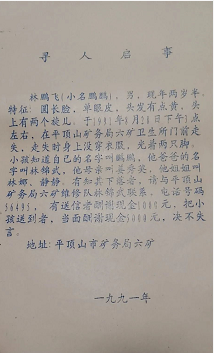 寻人启事
林鹏飞(小名鹏鹏)，男，现年两岁半。
特征：圆长脸，单眼皮，头发有点黄，头
上有两个旋儿。于1991年6月21日下午1点
左右，在平顶山矿务局六矿卫生所门前走
失，走失时身上没穿衣服，光着两只脚。
小孩知道自己的名字叫鹏鹏，他爸爸的名
字叫林锦武，他母亲叫姜秀英，他姐姐叫
林娜，静静。有知其下落者，请与平顶山
矿务局六矿维修队林锦武联系。电话号码
56495，有送信者酬谢现金1000元，把小
孩送到者，当面酬谢现金5000元，决不失
言。
地址：平顶山市矿务局六矿
一九九一年